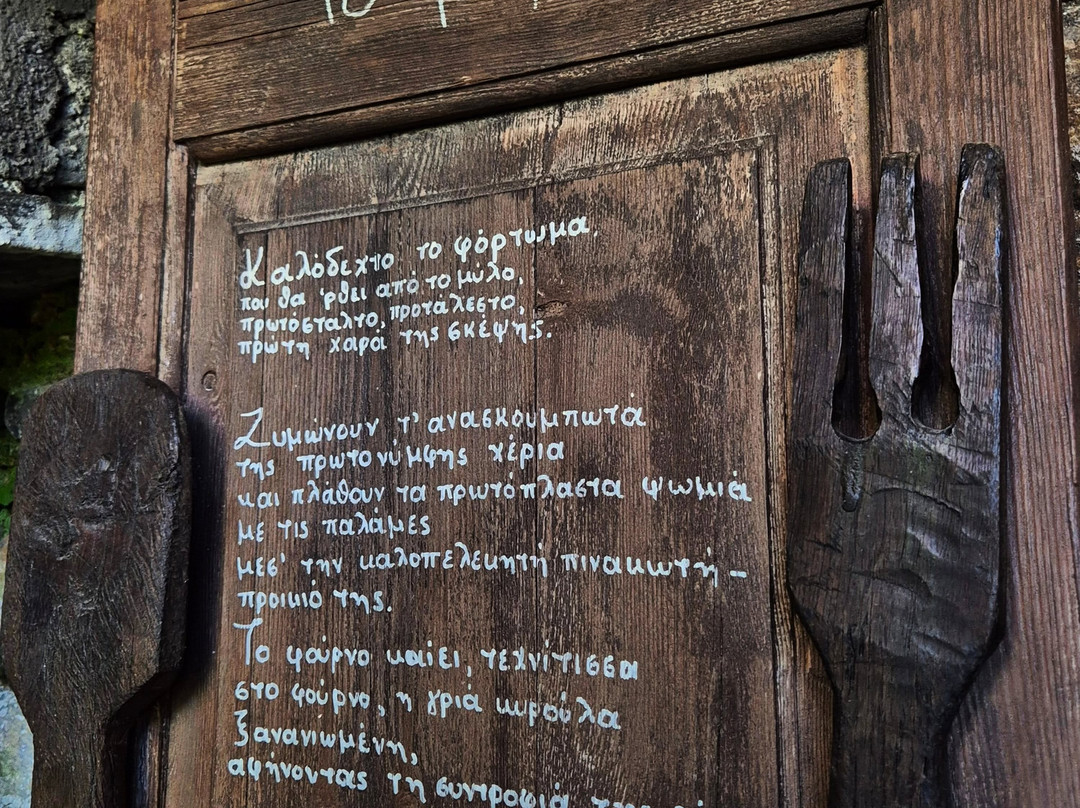 Καλόδεχτο το φόρτωμα,
και θα 'ρθει από το μύλο,
πρωτόσταλτο, πρωτάλεστο,
πρώτη χαρά της σκέψης.
Ζυμώνουν τ' ανασκουμπωτά
της πρωτονύμφης χέρια
και πλάθουν τα πρωτόπλαστα ψωμιά
με τις παλάμες
μεσ' την καλοπελεκητή πινακωτή –
προικιό της.
Το φούρνο καίει, τεχνίτισσα
στο φούρνο, η γριά κυρούλα
ξανανιωμένη,
αφήνοντας τη συντροφιά